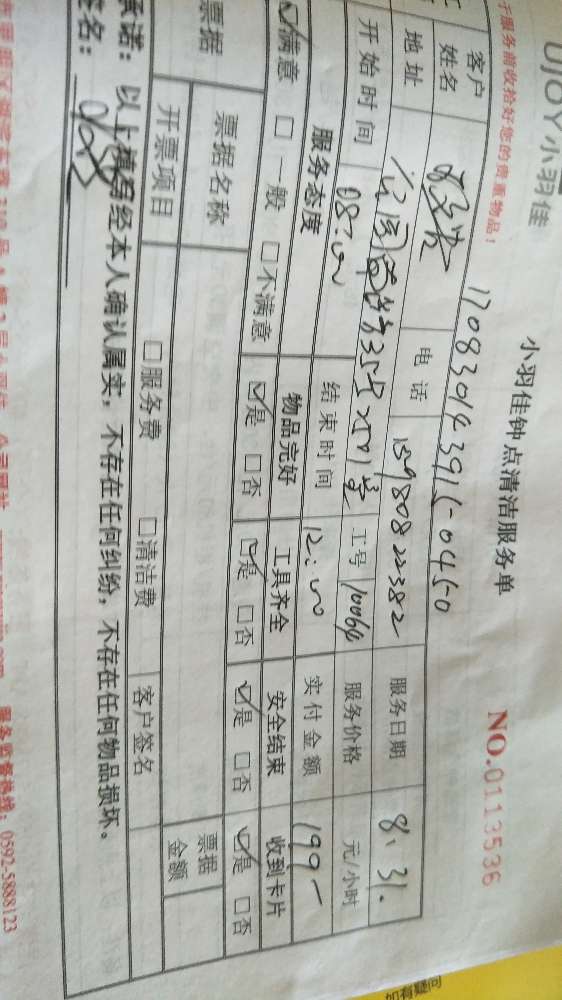 UJOY小羽佳
小羽佳钟点清洁服务单
NO.0113536
于服务前收拾好您的贵重物品!
170830143915-0450
客户姓名 电话 15980822382 服务日期 8.31.
地址 工号 10064 服务价格 元/小时
开始时间 08:00 结束时间 12:00 实付金额 199-
服务态度 物品完好 工具齐全 安全结束 收到卡片
☑满意 □一般 □不满意 ☑是 □否 ☑是 □否 ☑是 □否 ☑是 □否
票据 票据名称 票据金额
开票项目 □服务费 □清洁费 客户签名
承诺:以上填写经本人确认属实,不存在任何纠纷,不存在任何物品损坏。
签名:
服务监督热线:0592-5888123
如有疑问